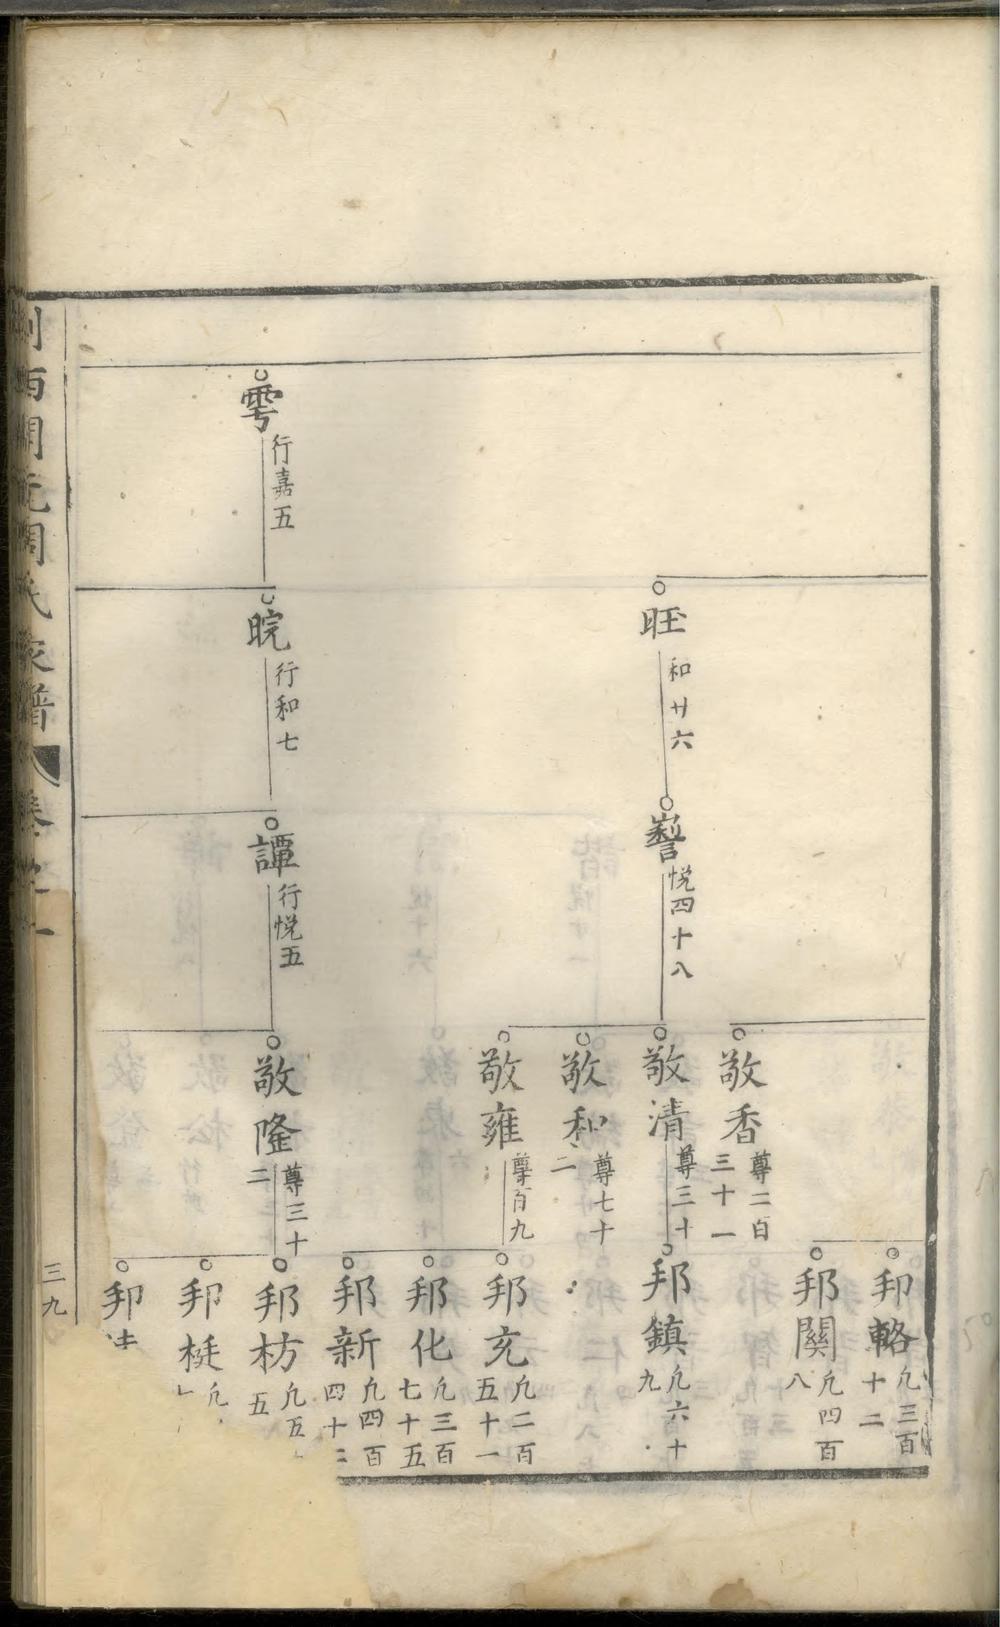 雩
行嘉五
旺
和廿六
晥
行和七
謺
悅四十八
譚
行悅五
敬香
尊二百
三十一
敬清
尊三十
敬和
尊七十
二
敬雍
尊百九
敬隆
尊三十
二
邦輅
凣三百
十二
邦關
凣四百
八
邦鎮
凣六十
九
邦充
凣二百
五十一
邦化
凣三百
七十五
邦新
凣四百
四十二
邦枋
凣五
五
邦梃
凣
邦
西開元周氏家譜
卷之
三九